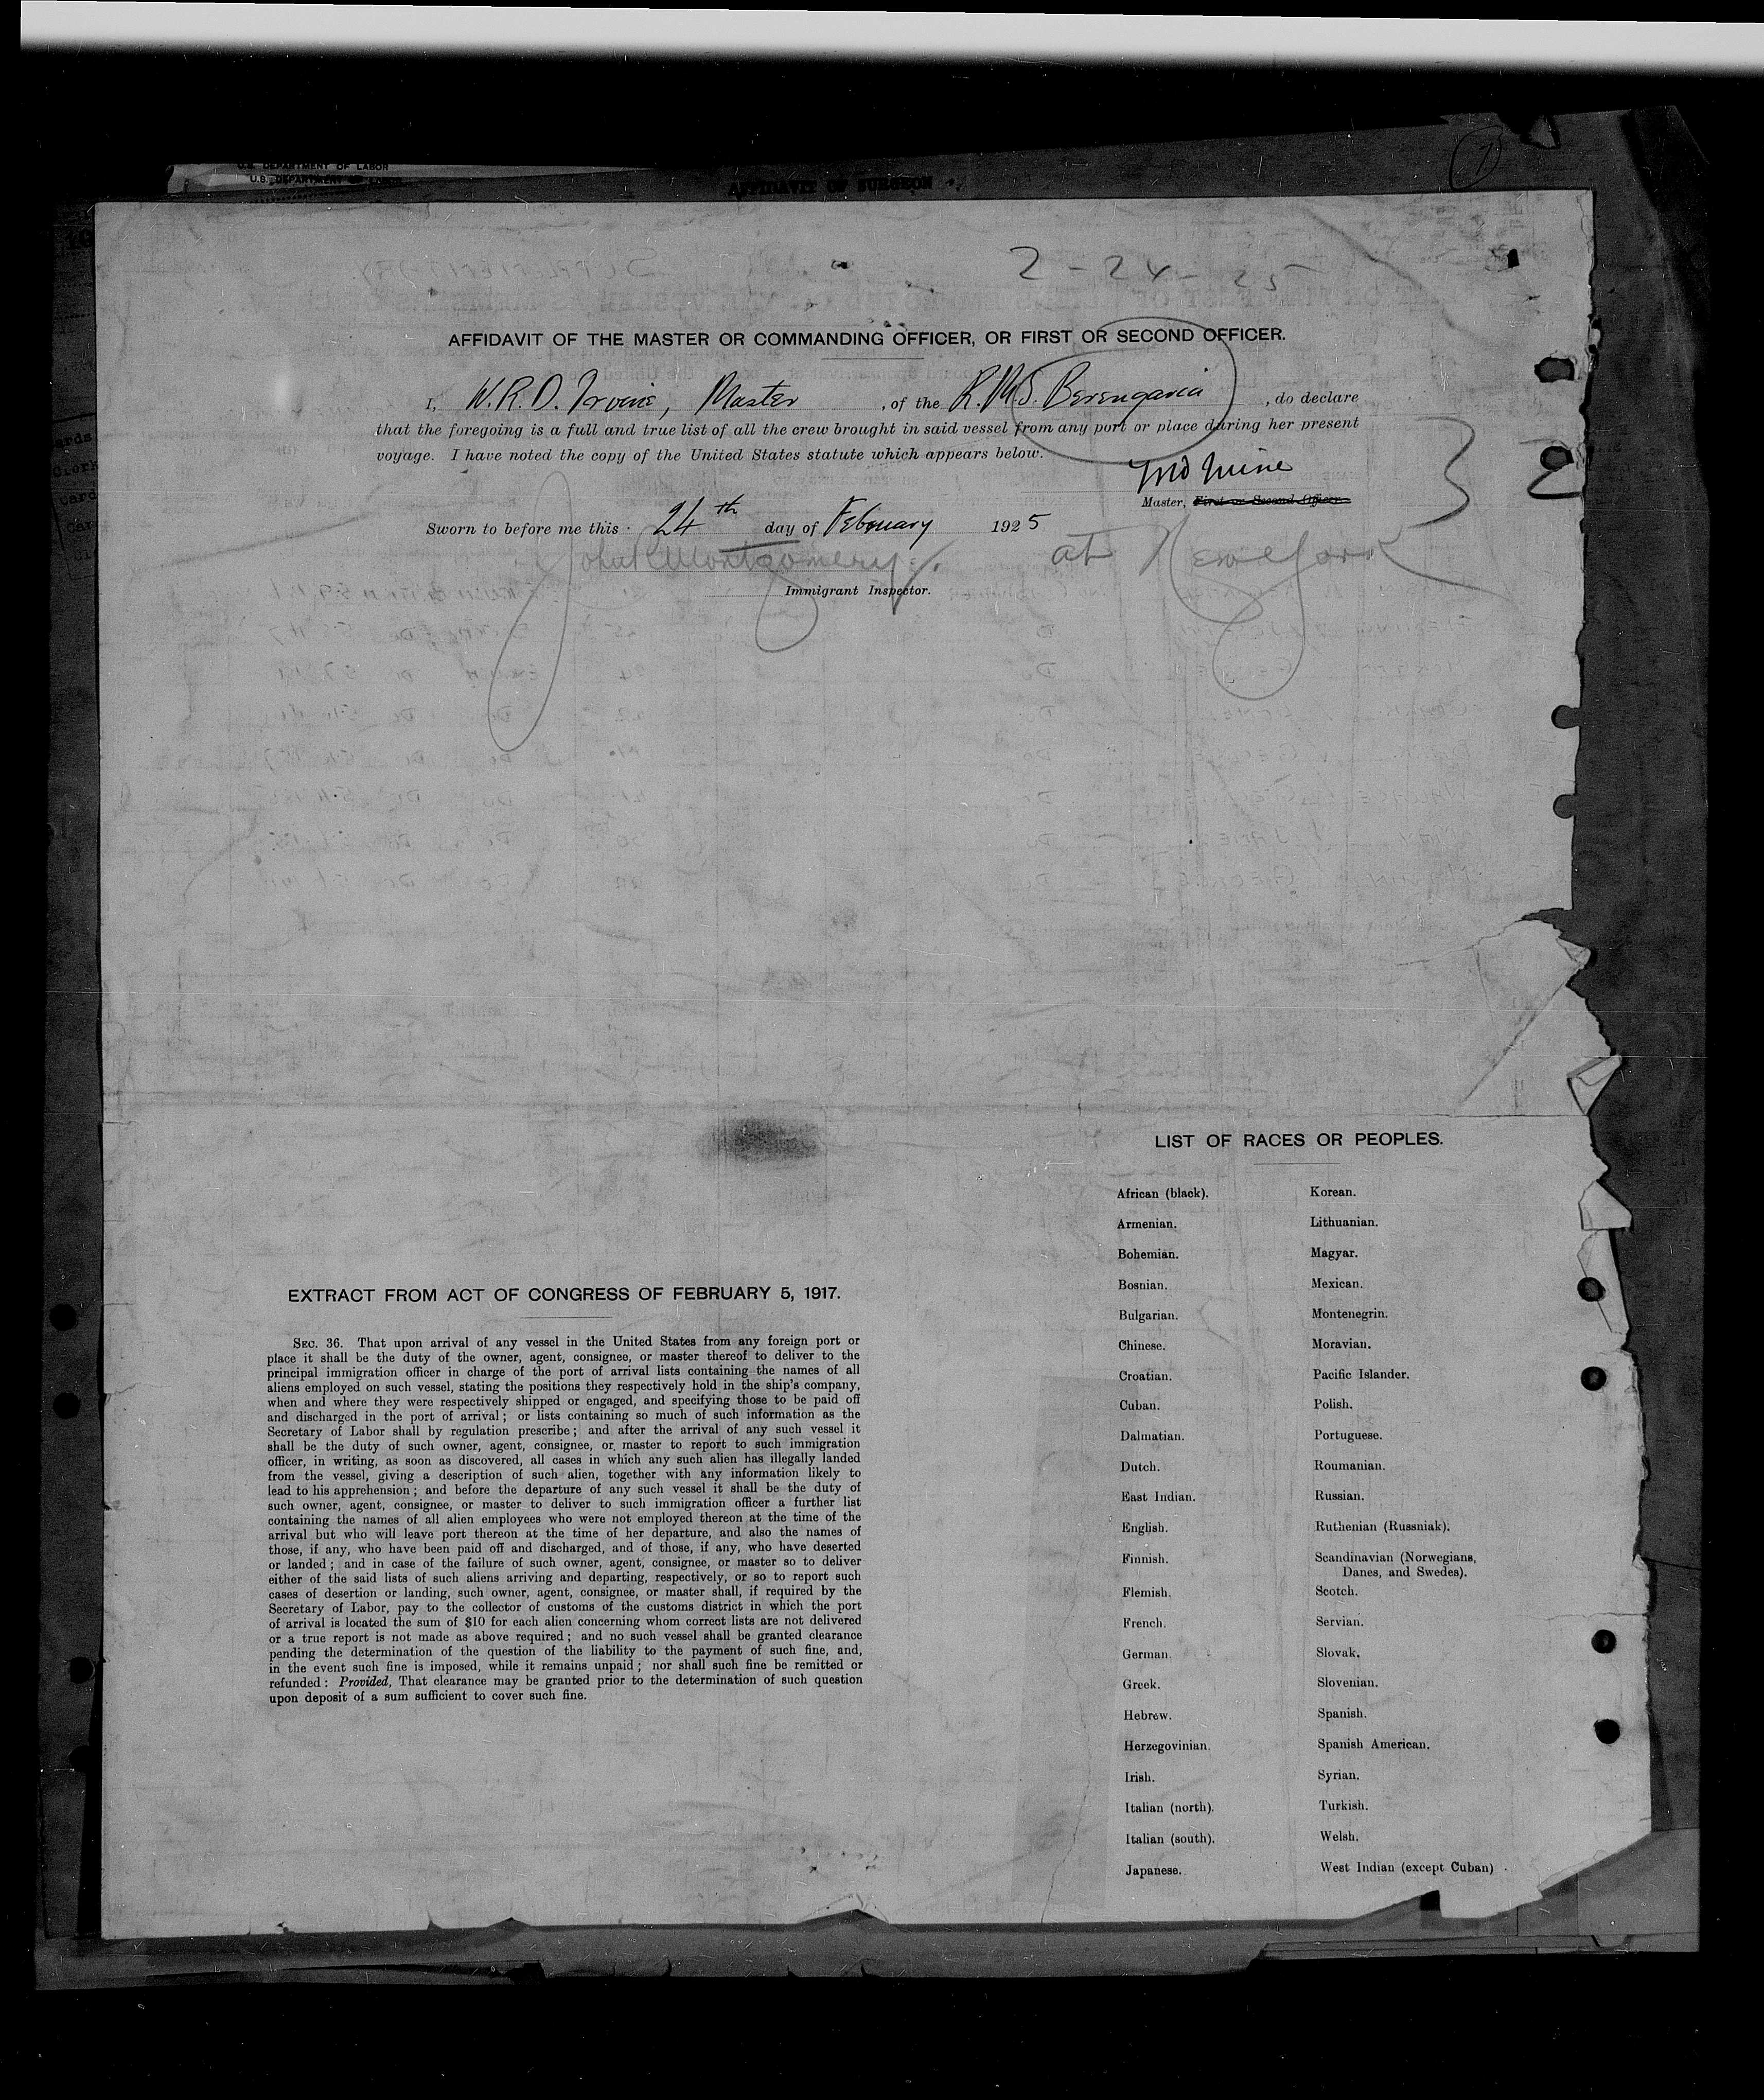 U.S. DEPARTMENT OF LABOR
U.S. DEPARTMENT OF LABOR
AFFIDAVIT OF SURGEON
7
2-24-25
AFFIDAVIT OF THE MASTER OR COMMANDING OFFICER, OR FIRST OR SECOND OFFICER.
I, W.R.D. Irvine, Master, of the R.M.S. Berengaria, do declare
that the foregoing is a full and true list of all the crew brought in said vessel from any port or place during her present
voyage. I have noted the copy of the United States statute which appears below.
Master, First or Second Officer.
Sworn to before me this 24th day of February 1925
at New York
Montgomery
Immigrant Inspector.
LIST OF RACES OR PEOPLES.
African (black). Korean.
Armenian. Lithuanian.
Bohemian. Magyar.
Bosnian. Mexican.
Bulgarian. Montenegrin.
Chinese. Moravian.
Croatian. Pacific Islander.
Cuban. Polish.
Dalmatian. Portuguese.
Dutch. Roumanian.
East Indian. Russian.
English. Ruthenian (Russniak).
Finnish. Scandinavian (Norwegians,
Danes, and Swedes).
Flemish. Scotch.
French. Servian.
German. Slovak.
Greek. Slovenian.
Hebrew. Spanish.
Herzegovinian. Spanish American.
Irish. Syrian.
Italian (north). Turkish.
Italian (south). Welsh.
Japanese. West Indian (except Cuban)
EXTRACT FROM ACT OF CONGRESS OF FEBRUARY 5, 1917.
SEC. 36. That upon arrival of any vessel in the United States from any foreign port or
place it shall be the duty of the owner, agent, consignee, or master thereof to deliver to the
principal immigration officer in charge of the port of arrival lists containing the names of all
aliens employed on such vessel, stating the positions they respectively hold in the ship's company,
when and where they were respectively shipped or engaged, and specifying those to be paid off
and discharged in the port of arrival; or lists containing so much of such information as the
Secretary of Labor shall by regulation prescribe; and after the arrival of any such vessel it
shall be the duty of such owner, agent, consignee, or master to report to such immigration
officer, in writing, as soon as discovered, all cases in which any such alien has illegally landed
from the vessel, giving a description of such alien, together with any information likely to
lead to his apprehension; and before the departure of any such vessel it shall be the duty of
such owner, agent, consignee, or master to deliver to such immigration officer a further list
containing the names of all alien employees who were not employed thereon at the time of the
arrival but who will leave port thereon at the time of her departure, and also the names of
those, if any, who have been paid off and discharged, and of those, if any, who have deserted
or landed; and in case of the failure of such owner, agent, consignee, or master so to deliver
either of the said lists of such aliens arriving and departing, respectively, or so to report such
cases of desertion or landing, such owner, agent, consignee, or master shall, if required by the
Secretary of Labor, pay to the collector of customs of the customs district in which the port
of arrival is located the sum of $10 for each alien concerning whom correct lists are not delivered
or a true report is not made as above required; and no such vessel shall be granted clearance
pending the determination of the question of the liability to the payment of such fine, and,
in the event such fine is imposed, while it remains unpaid; nor shall such fine be remitted or
refunded: Provided, That clearance may be granted prior to the determination of such question
upon deposit of a sum sufficient to cover such fine.